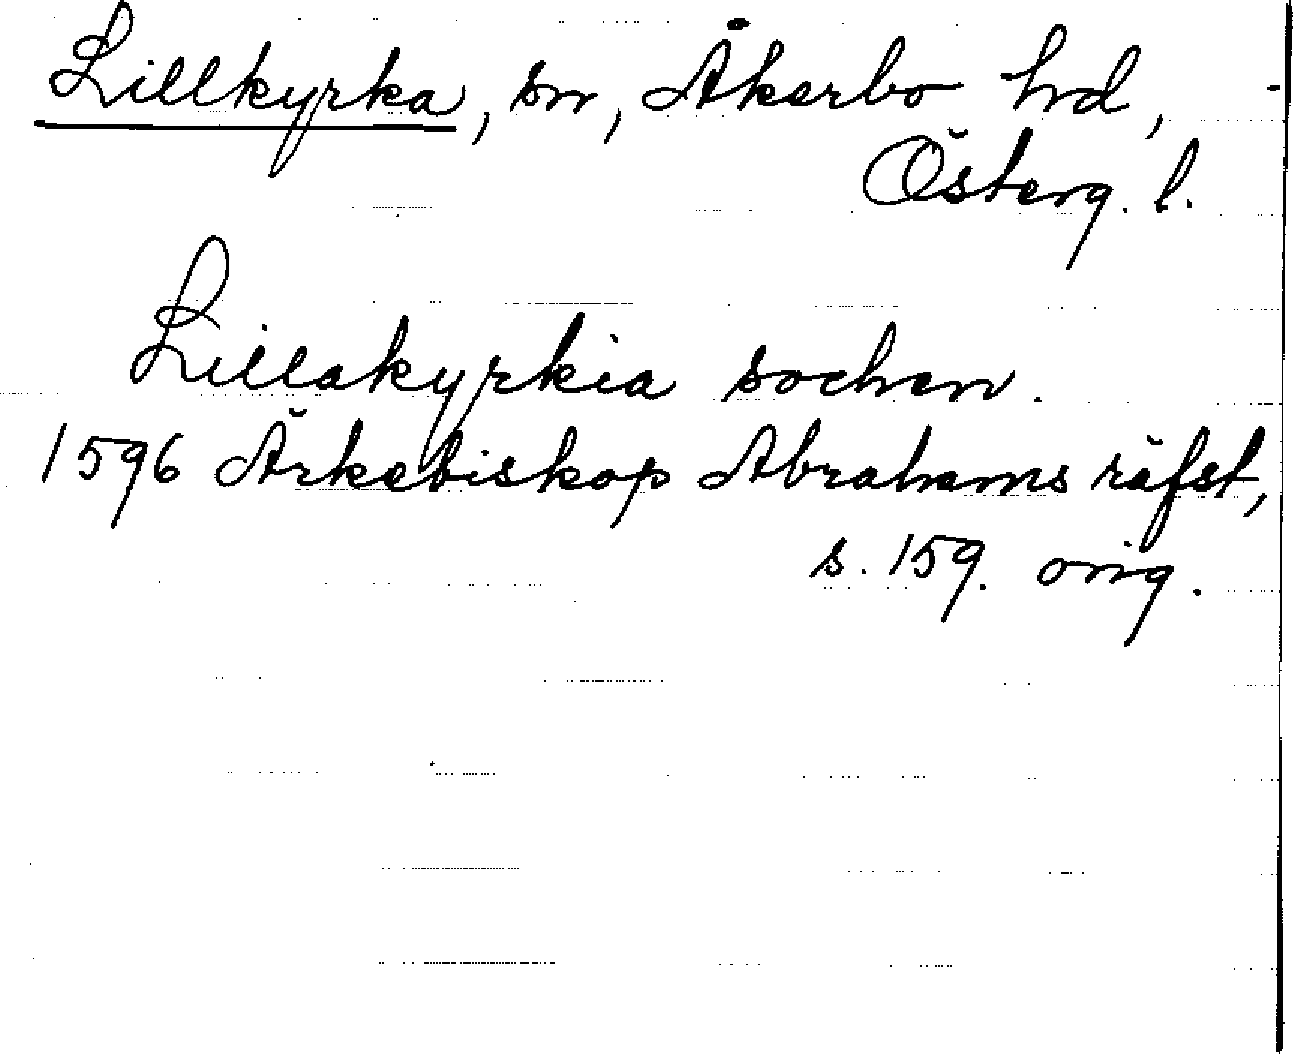 Lillkyrka, sn, Åkerbo hd,
Österg. l.
Lillakyrkia sochen.
1596 Ärkebiskop Abrahams räfst,
s. 159. orig.